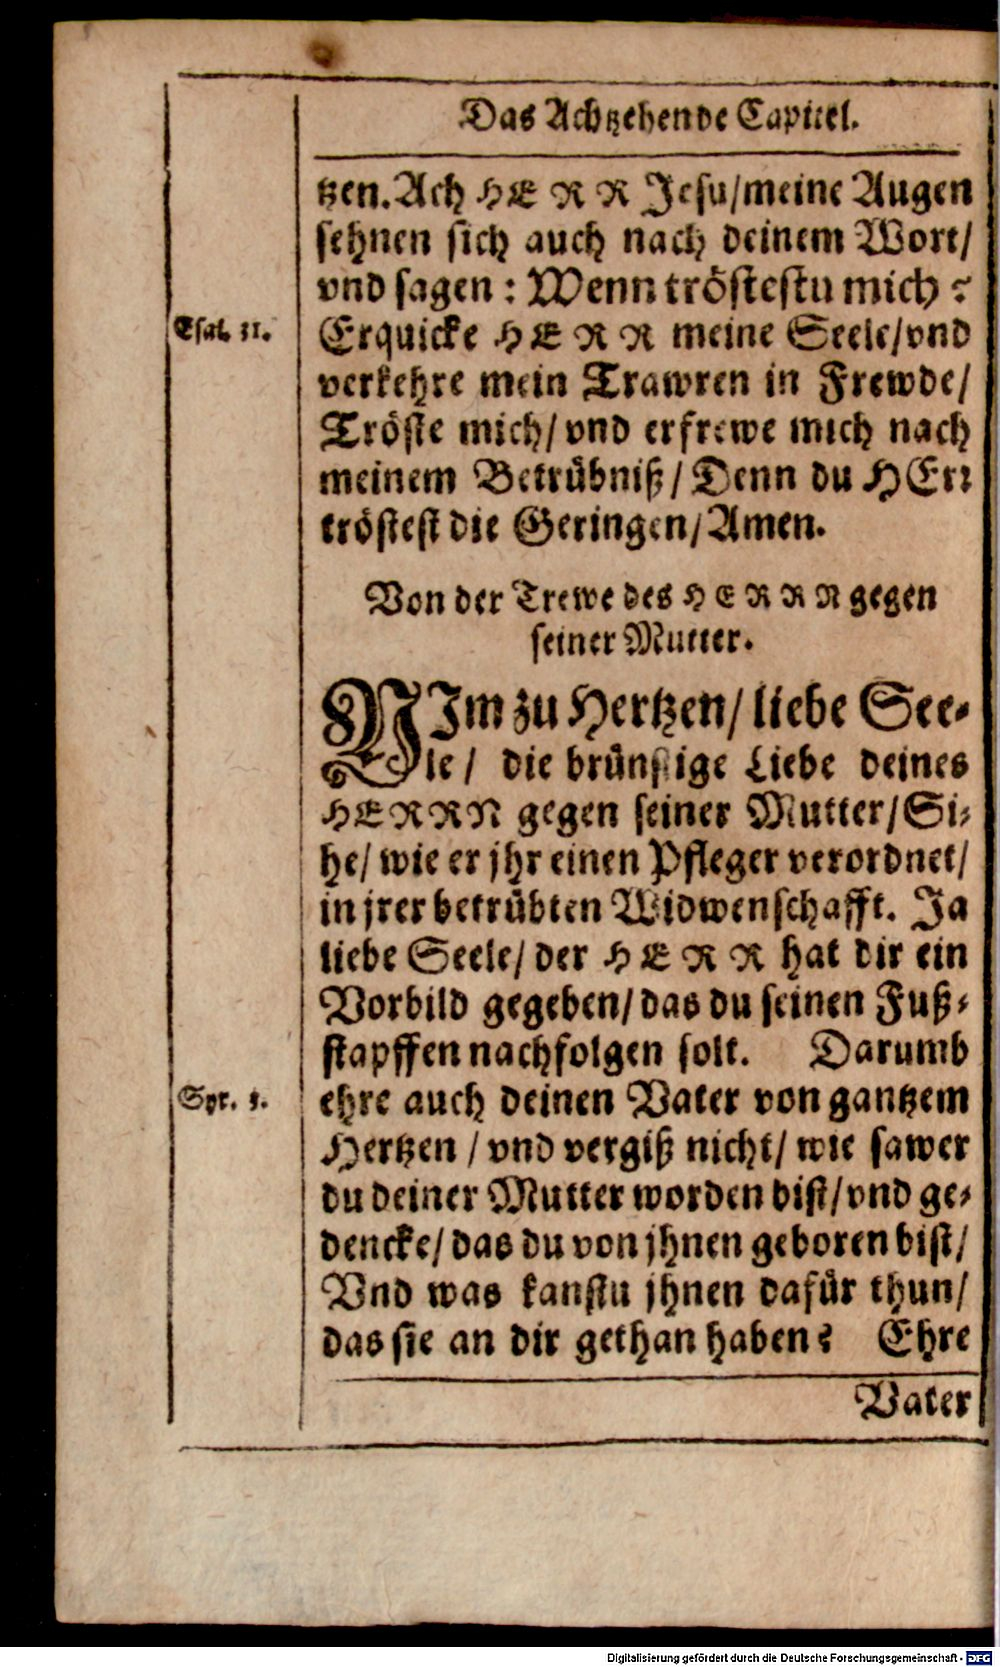 Das Achtzehende Capittel.
tzen. Ach HERR Jesu/meine Augen
sehnen sich auch nach deinem Wort/
vnd sagen: Wenn tröstestu mich?
Erquicke HERR meine Seele/vnd
verkehre mein Trawren in Frewde/
Tröste mich/ vnd erfrewe mich nach
meinem Betrübniß/ Denn du HErr
tröstest die Geringen/Amen.
Von der Trewe des HERRN gegen
seiner Mutter.
NIm zu Hertzen/ liebe See-
le/ die brünstige Liebe deines
HERRN gegen seiner Mutter/Si-
he/ wie er jhr einen Pfleger verordnet/
in jrer betrübten Widwenschafft. Ja
liebe Seele/ der HERR hat dir ein
Vorbild gegeben/ das du seinen Fuß-
stapffen nachfolgen solt. Darumb
Syr. 3.
ehre auch deinen Vater von gantzem
Hertzen / vnd vergiß nicht/ wie sawer
du deiner Mutter worden bist/vnd ge-
dencke/ das du von jhnen geboren bist/
Vnd was kanstu jhnen dafür thun/
das sie an dir gethan haben? Ehre
Vater
Digitalisierung gefördert durch die Deutsche Forschungsgemeinschaft - DFG